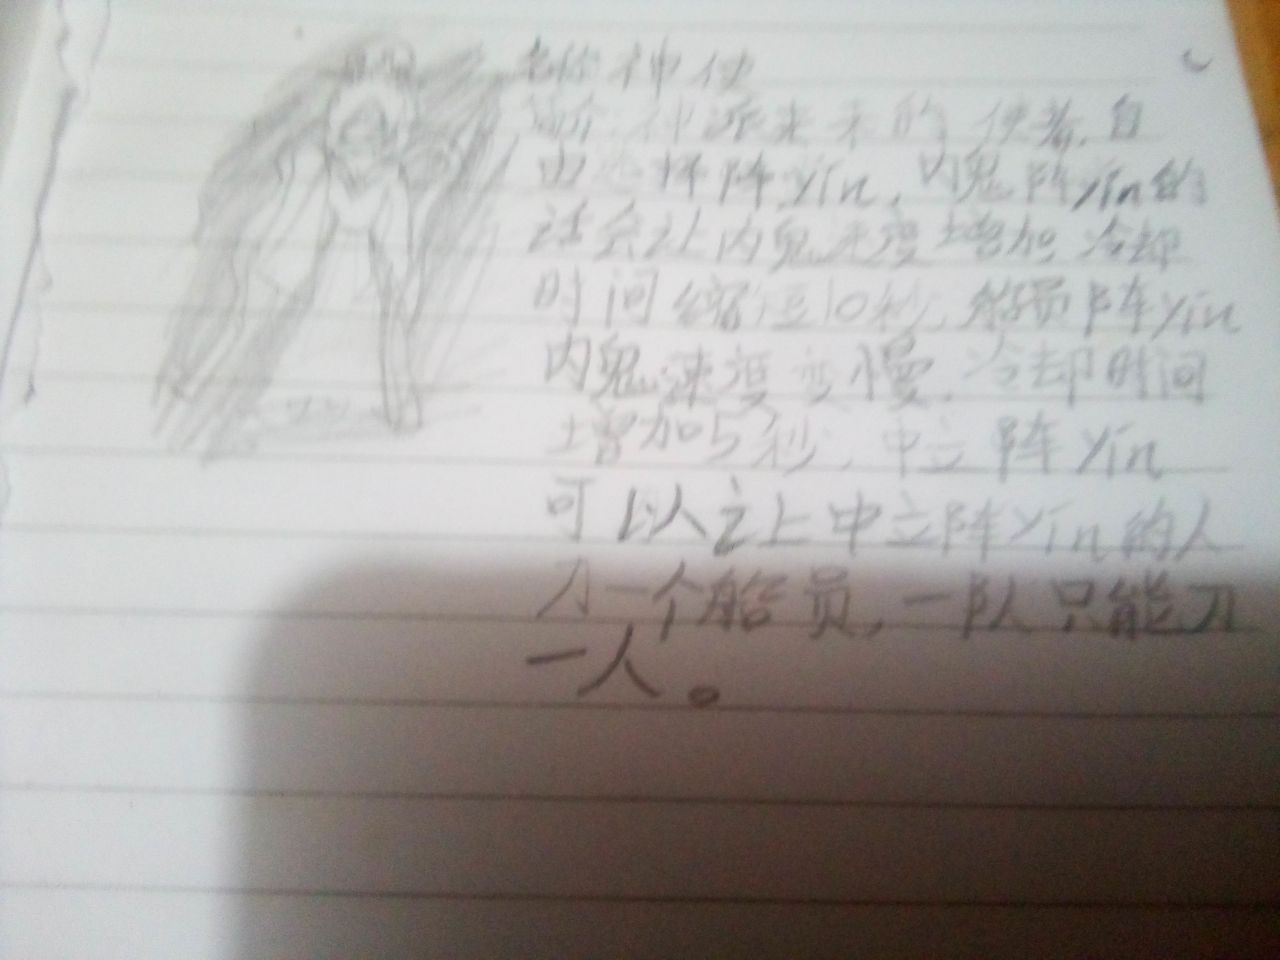 名称神使
简介:神派来来的使者,自
由选择阵yin,内鬼阵yin的
话会让内鬼速度增加冷却
时间缩短10秒,船员阵yin
内鬼速度变慢,冷却时间
增加5秒,中立阵yin
可以之上中立阵yin的人
刀一个船员,一队只能刀
一人。